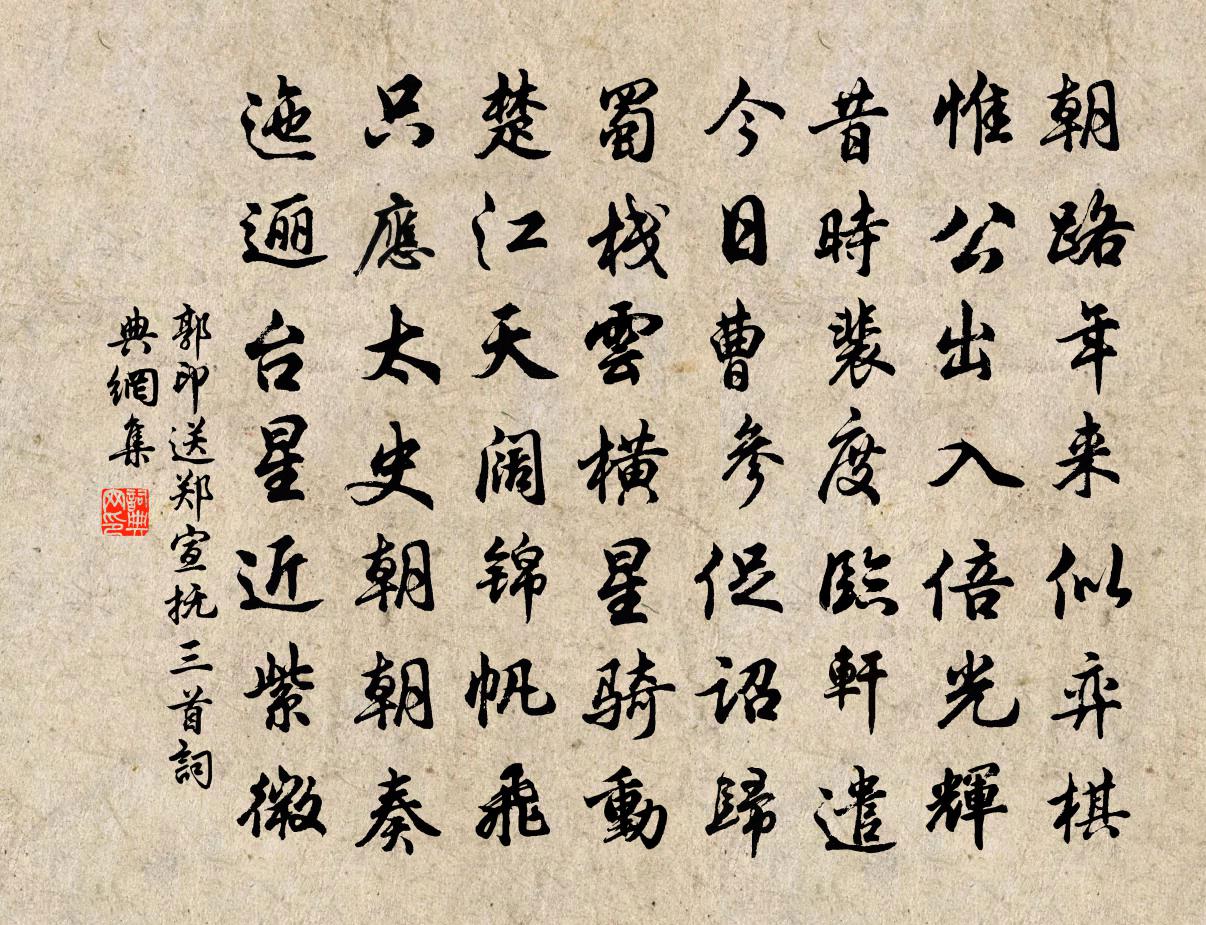 朝路年来似弈棋
惟公出入倍光輝
昔時裴度臨軒遣
今日曹參促詔歸
蜀栈雲横星骑動
楚江天阔锦帆飛
只應太史朝朝奏
迤逦台星近紫微
郭印送郑宣抚三首詞
典網集
詞典
网印